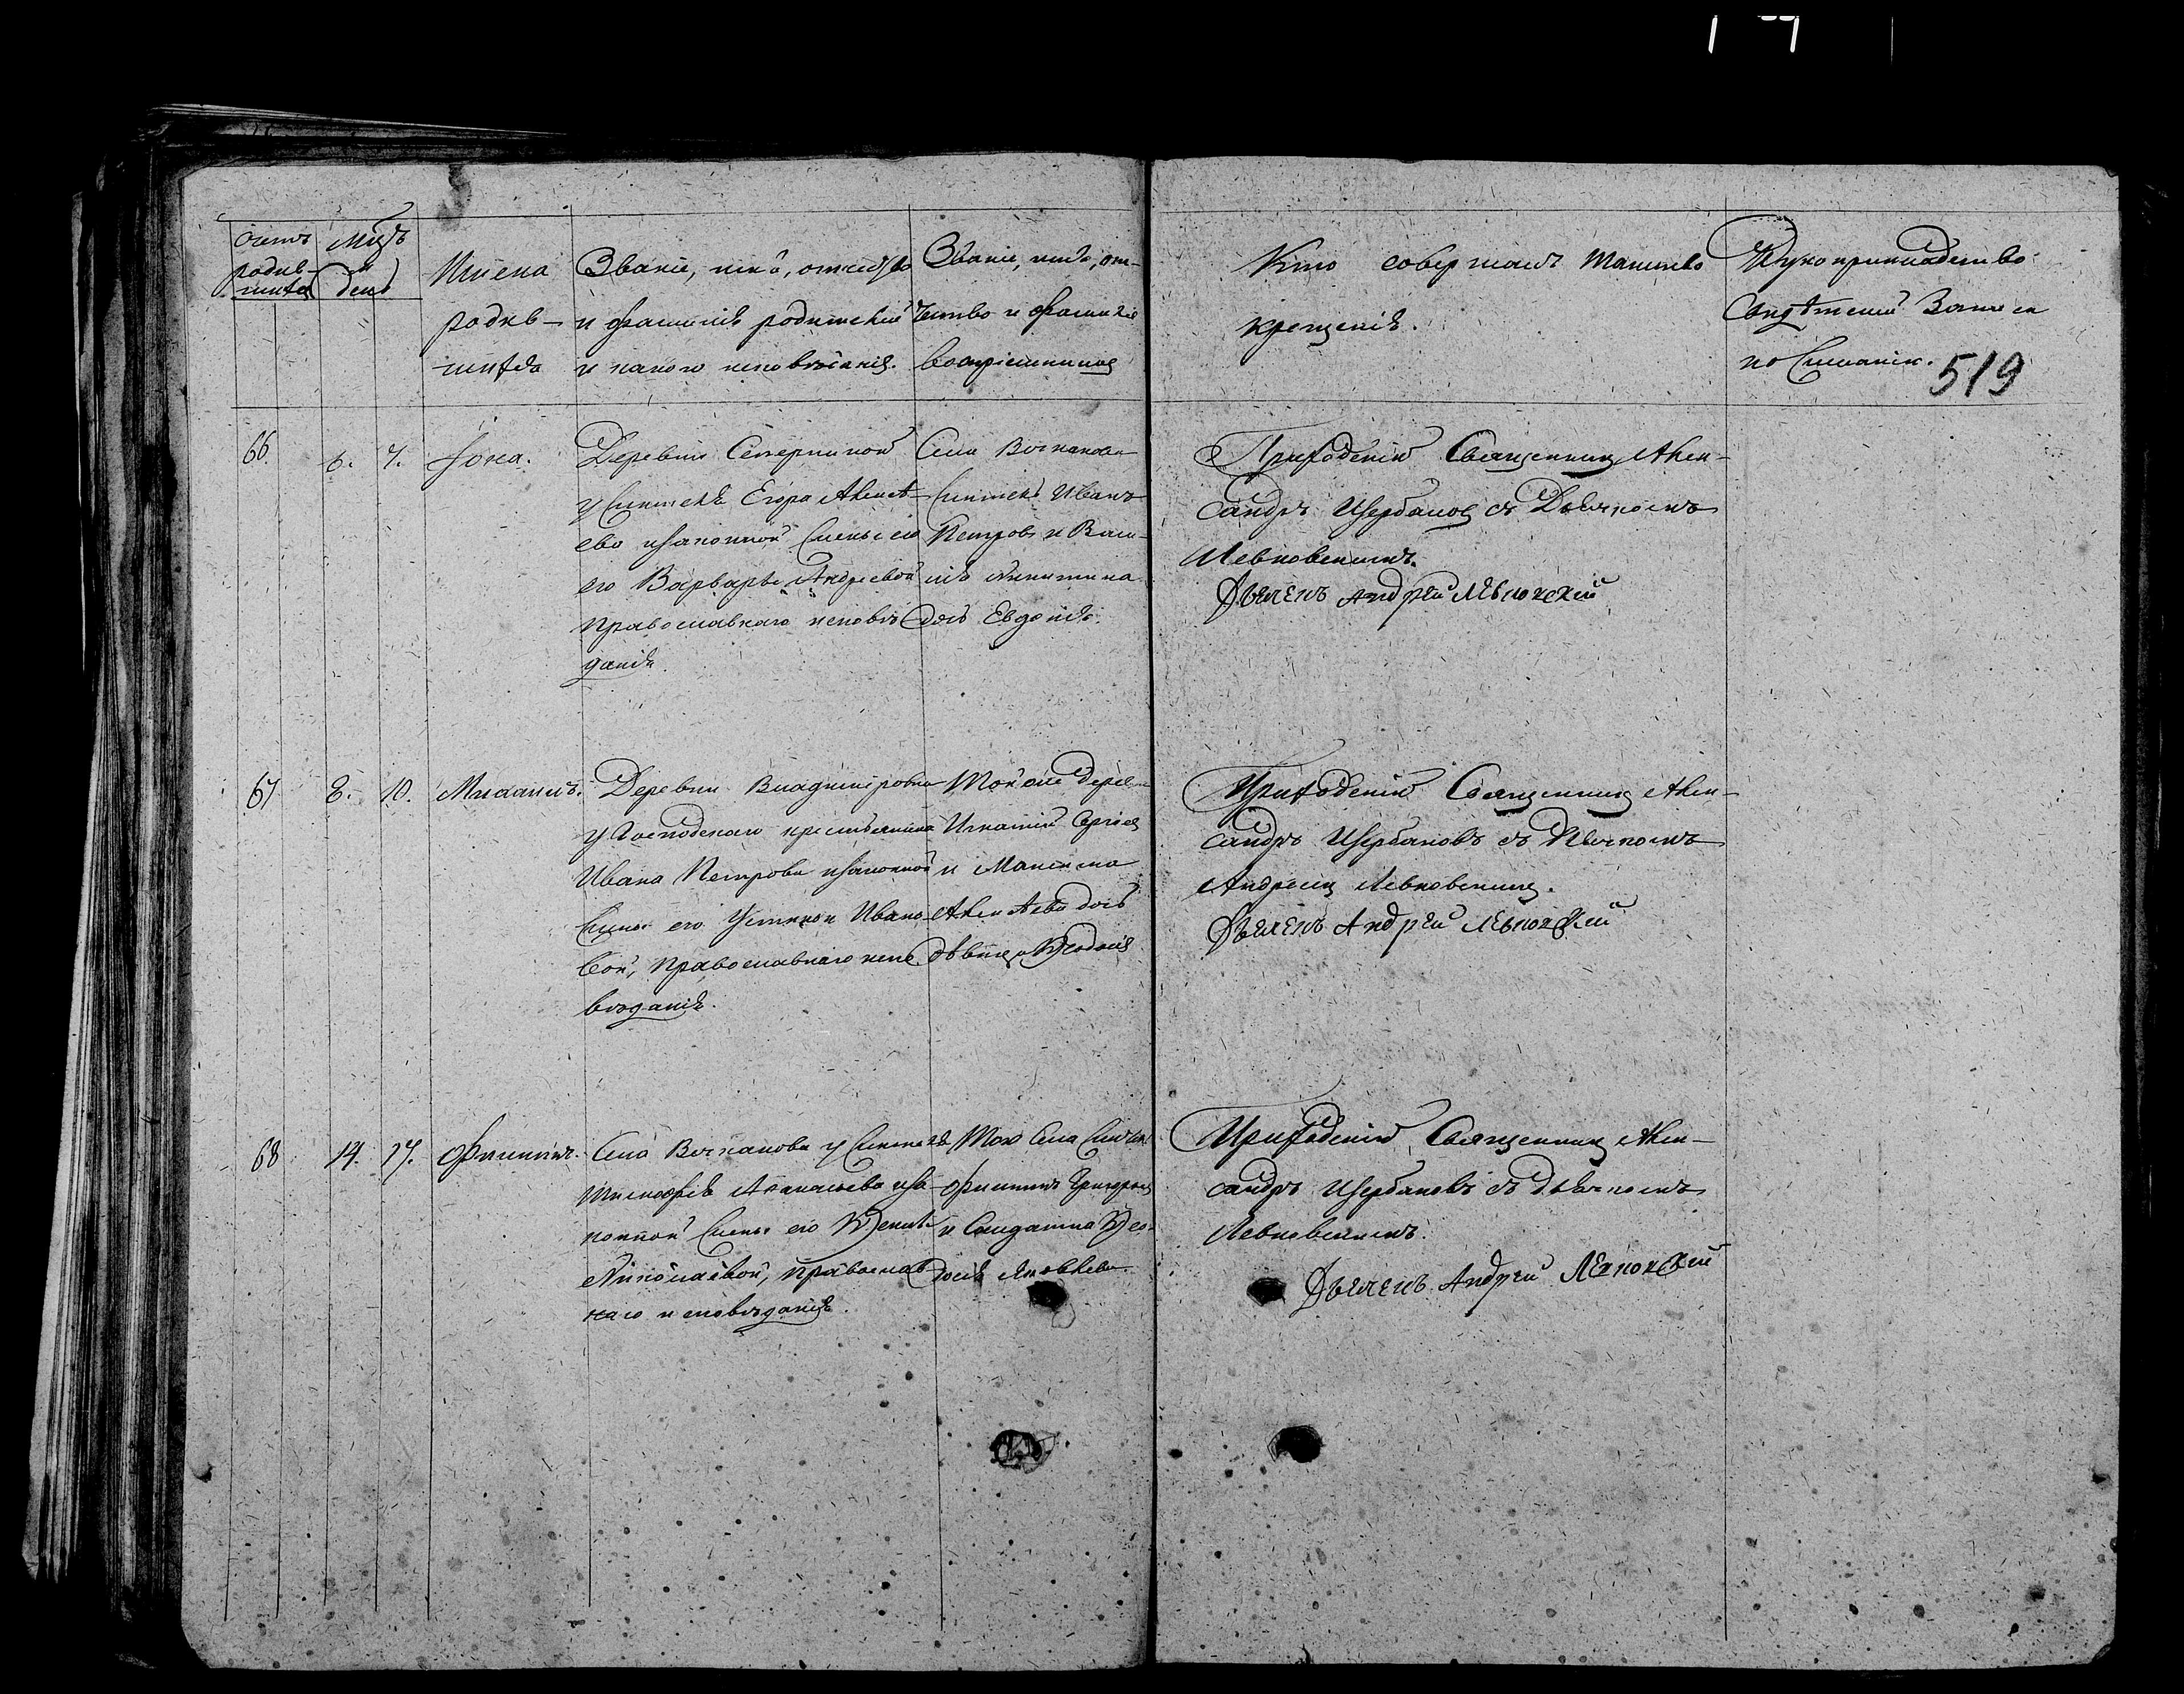 Счетъ
родив-
шихся
Мцъ
и
день
Имена
родив-
шихся
Званіе, имя, отчество
и фамилія родителей
и какого исповѣданія.
Званіе, имя, от-
чество и фамилія
воспріемниковъ
Кто совершалъ таинство
крещенія.
Рукоприкладство
Свидѣтелей записи
по желанію.
519
66.
6.
7.
Іона.
Деревни
Егора Алексѣ-
ева и законной жены его
его Варвары Андреевой
Православнаго исповѣ-
данія.
Села
Иванъ
Петровъ и
Никитина
дочь Евдокія.
Приходскій Священникъ Алек-
сандръ Щербаковъ съ Дьячкомъ
Левковскимъ.
Дьячекъ Андрей Левковскій
67
8.
10.
Михаилъ.
Деревни Владиміровки
у Господскаго крестьянина
Ивана Петрова и законной
жены его Устиньи Ивано-
вой, Православнаго испо-
вѣданія.
Той же дерев-
Игнатій Сергѣевъ
и Максима
Алексѣева дочь
дѣвица Ѳеодосія
Приходскій Священникъ Алек-
сандръ Щербаковъ съ Дьячкомъ
Андреемъ Левковскимъ.
Дьячекъ Андрей Левковскій
68
14.
17.
Филиппъ.
Села
Тимофея Аѳанасьева и за-
конной жены его
Николаевой, Православ-
наго исповѣданія.
Того Села
Филиппъ Григорьевъ
и Солдатка Ѳео-
досія Яковлева.
Приходскій Священникъ Алек-
сандръ Щербаковъ съ дьячкомъ
Левковскимъ.
Дьячекъ Андрей Левковскій